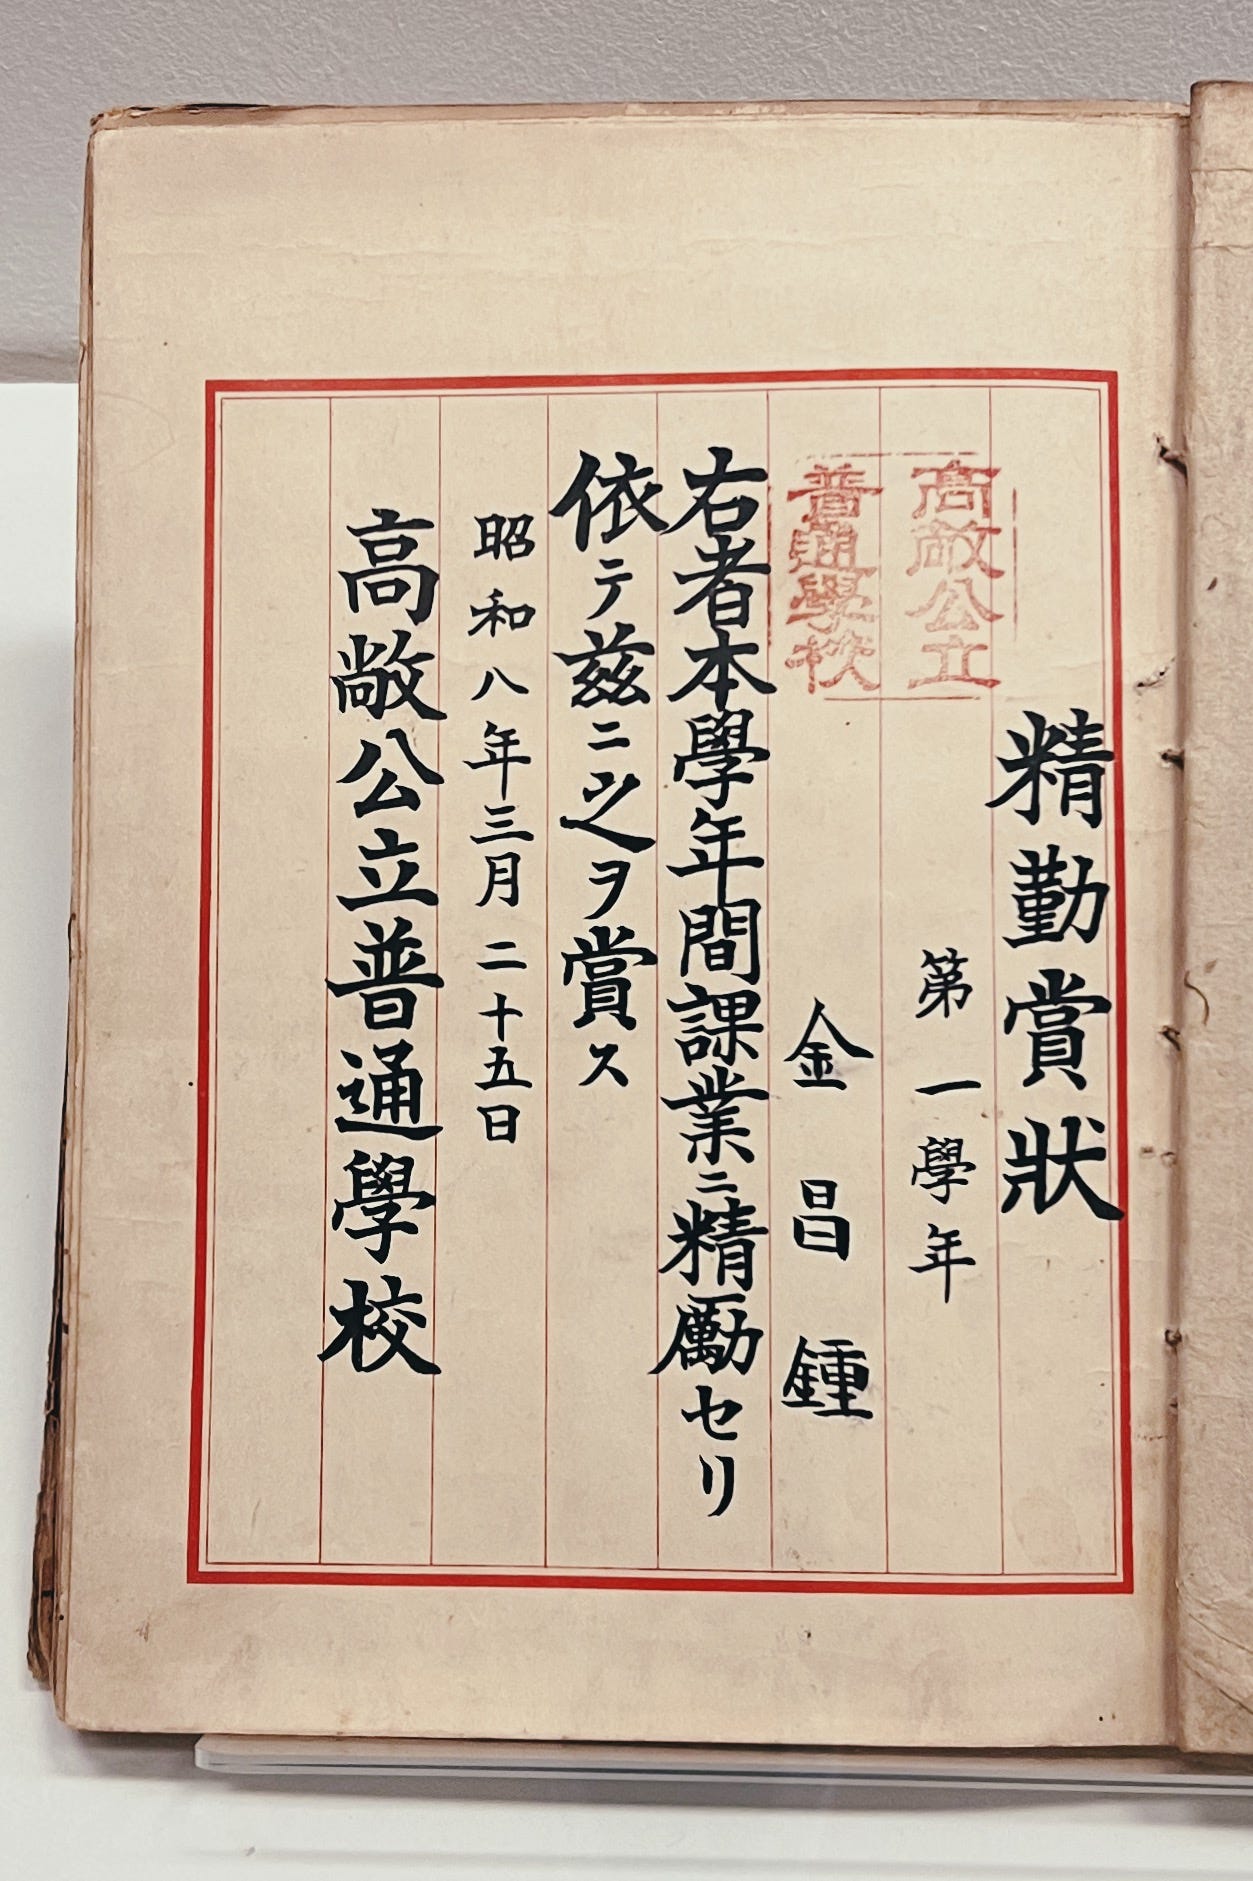 精勤賞狀
第一學年
高敞公立
普通學校
金昌鍾
右者本學年間課業ニ精勵セリ
依テ玆ニ之ヲ賞ス
昭和八年三月二十五日
高敞公立普通學校